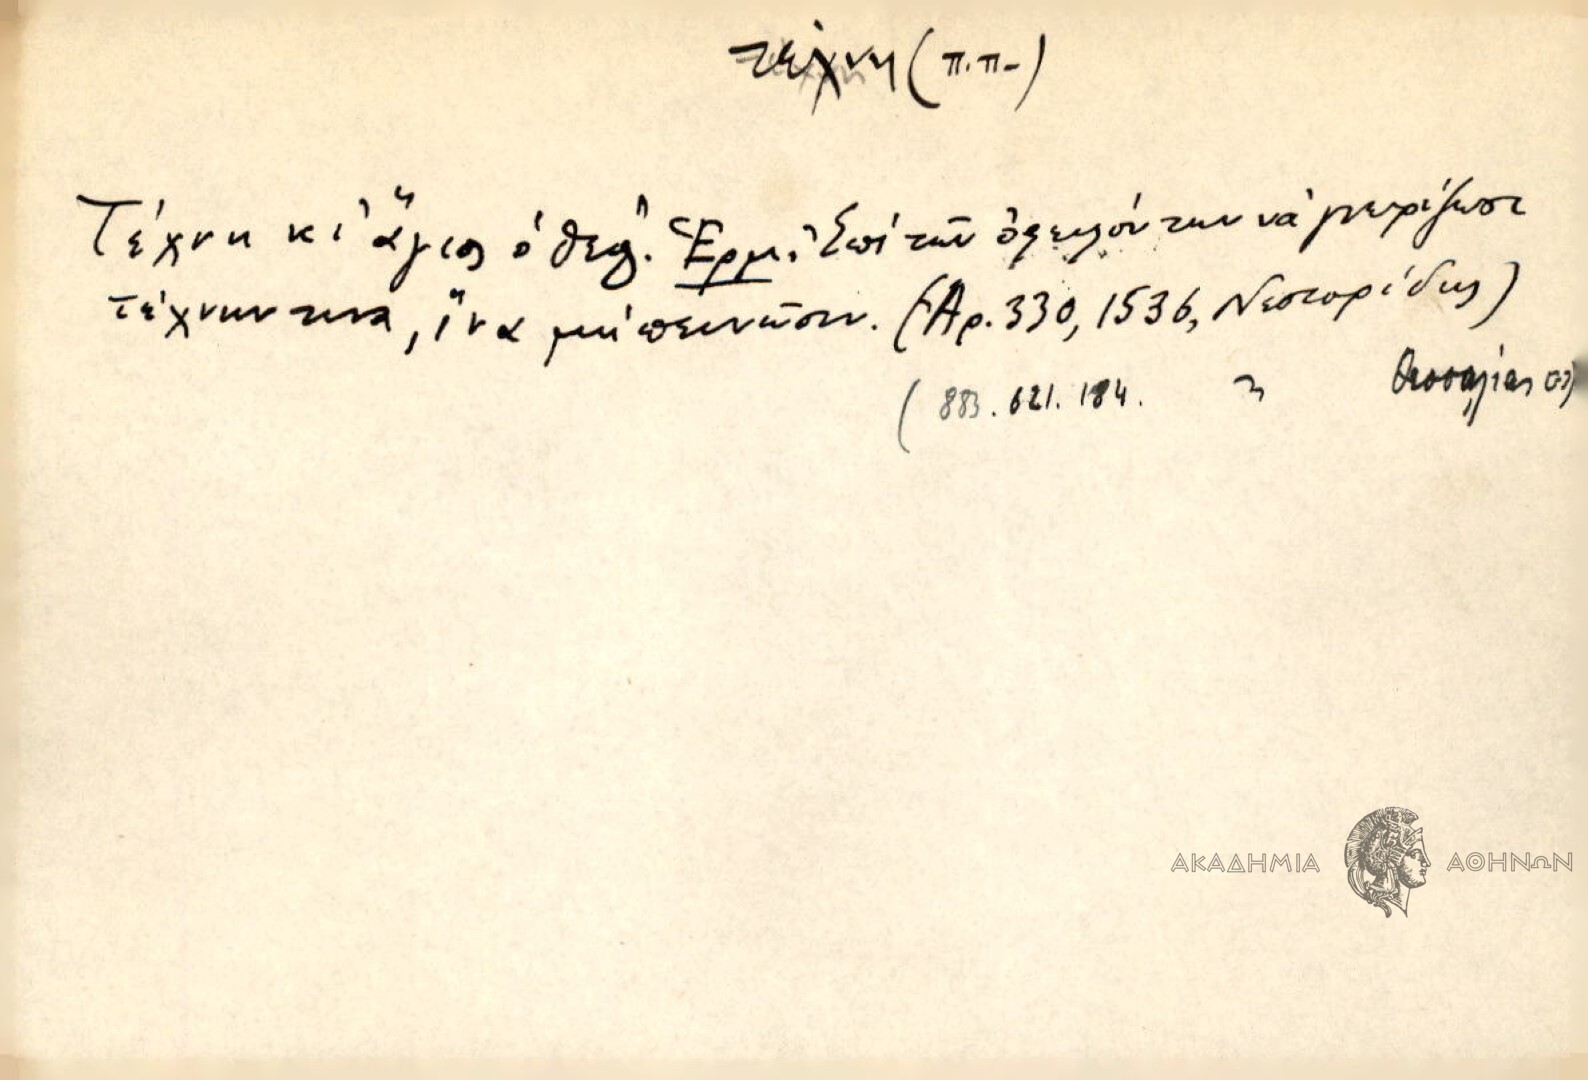 τέχνη (π.π-)
Τέχνη κι' ἅγιος ὁ θεό. Ἑρμ. Ἐπὶ τῶν ὀφειλόντων νὰ γνωρίζωσι
τέχνην τινα, ἵνα μὴ πεινῶσιν. (Ἀρ. 330, 1536, Νεστορίδης)
( 883. 621. 184. Θεσσαλίας
ΑΚΑΔΗΜΙΑ ΑΘΗΝΩΝ